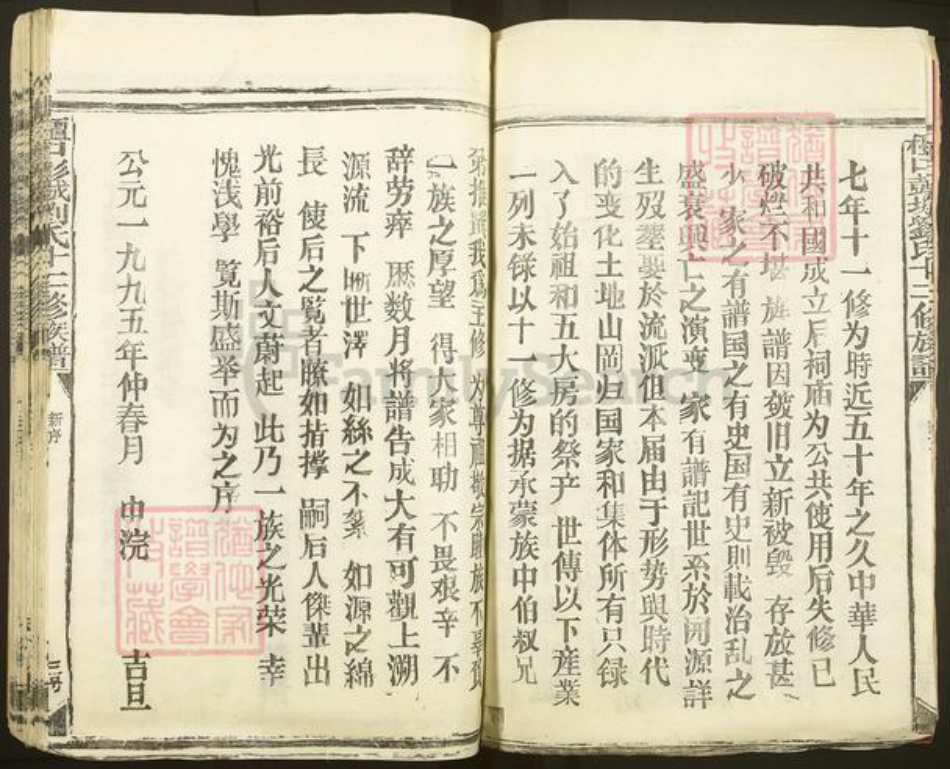 七年十一修为時近五十年之久中華人民
共和國成立后祠庙为公共使用后失修已
破烂不堪 族譜因破旧立新被毁 存放甚
少 家之有譜国之有史国有史則載治乱之
盛衰興亡之演变 家有譜記世系於開源詳
生殁塟娶於流派但本届由于形势與時代
的变化土地山岡归国家和集体所有只録
入了始祖和五大房的祭产 世傳以下産業
一列未録以十一修为据承蒙族中伯叔兄
弟推薦我爲主修 为尊祖敬宗睦族不辜負
一族之厚望 得大家相助 不畏艰辛 不
辞劳瘁 厯数月将譜告成大有可觀上溯
源流 下 世澤 如絲之不紊 如源之綿
長 使后之覧者瞭如指掌 嗣后人傑輩出
光前裕后人文蔚起 此乃一族之光荣 幸
愧浅學 覧斯盛举而为之序
公元一九九五年仲春月 中浣 吉旦
彭城刘氏十二修族譜
新序
FamilySearch